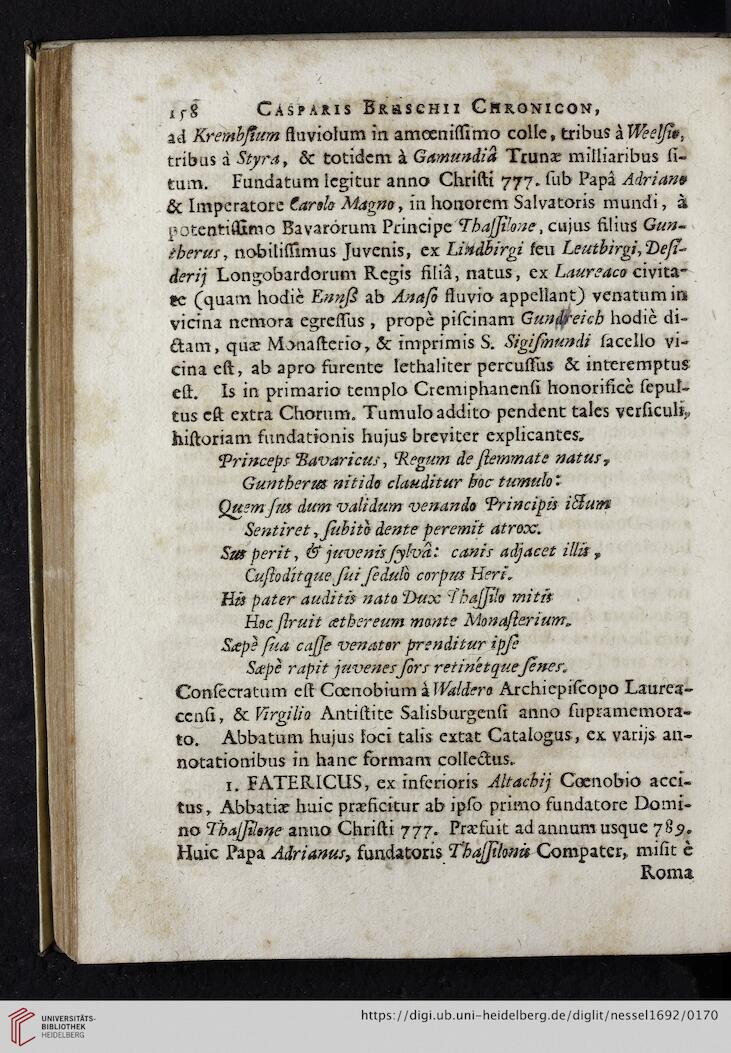 158 CASPARIS BRUSCHII CHRONICON,
ad Krembſium fluviolum in amœniſſimo colle, tribus à Weelſio,
tribus à Styra, & totidem à Gamundiâ Trunæ milliaribus ſi-
tum. Fundatum legitur anno Chriſti 777. ſub Papâ Adriano
& Imperatore Carolo Magno, in honorem Salvatoris mundi, à
potentiſſimo Bavarórum Principe Thaſſilone, cujus filius Gun-
therus, nobiliſſimus Juvenis, ex Liudbirgi ſeu Leutbirgi, Deſi-
derij Longobardorum Regis filiâ, natus, ex Laureaco civita-
te (quam hodiè Ennß ab Anaſo fluvio appellant) venatum in
vicina nemora egreſſus, propè piſcinam Gundreich hodiè di-
ctam, quæ Monaſterio, & imprimis S. Sigiſmundi ſacello vi-
cina eſt, ab apro furente lethaliter percuſſus & interemptus
eſt. Is in primario templo Cremiphanenſi honorificè ſepul-
tus eſt extra Chorum. Tumulo addito pendent tales verſiculi,
hiſtoriam fundationis hujus breviter explicantes.
Princeps Bavaricus, Regum de ſtemmate natus,
Guntherus nitido clauditur hoc tumulo:
Quem ſus dum validum venando Principis ictum
Sentiret, ſubitò dente peremit atrox.
Sus perit, & juvenis ſylvâ: canis adjacet illis,
Cuſtoditque ſui ſedulò corpus Heri.
His pater auditis nato Dux Thaſſilo mitis
Hoc ſtruit æthereum monte Monaſterium.
Sæpè ſua caſſe venator prenditur ipſe
Sæpè rapit juvenes ſors retinétque ſenes.
Conſecratum eſt Cœnobium à Waldero Archiepiſcopo Laurea-
cenſi, & Virgilio Antiſtite Salisburgenſi anno ſupramemora-
to. Abbatum hujus loci talis extat Catalogus, ex varijs an-
notationibus in hanc formam collectus.
1. FATERICUS, ex inferioris Altachij Cœnobio acci-
tus, Abbatiæ huic præficitur ab ipſo primo fundatore Domi-
no Thaſſilone anno Chriſti 777. Præfuit ad annum usque 789.
Huic Papa Adrianus, fundatoris Thaſſilonis Compater, miſit è
Roma
UNIVERSITÄTS-
BIBLIOTHEK
HEIDELBERG
https://digi.ub.uni-heidelberg.de/diglit/nessel1692/0170